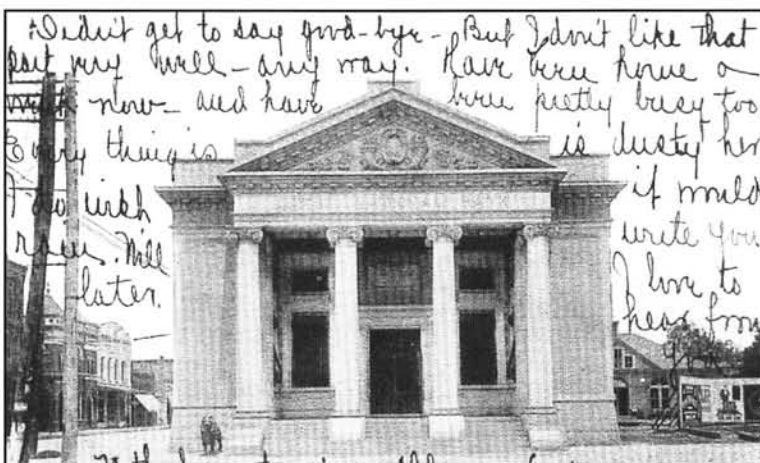 Didn't get to say good-bye - But I don't like that
part very well - any way. Have been home a
week now - and have been pretty busy too
Every thing is is dusty her
I do wish it would
rain. Will write you
later. I love to
hear from